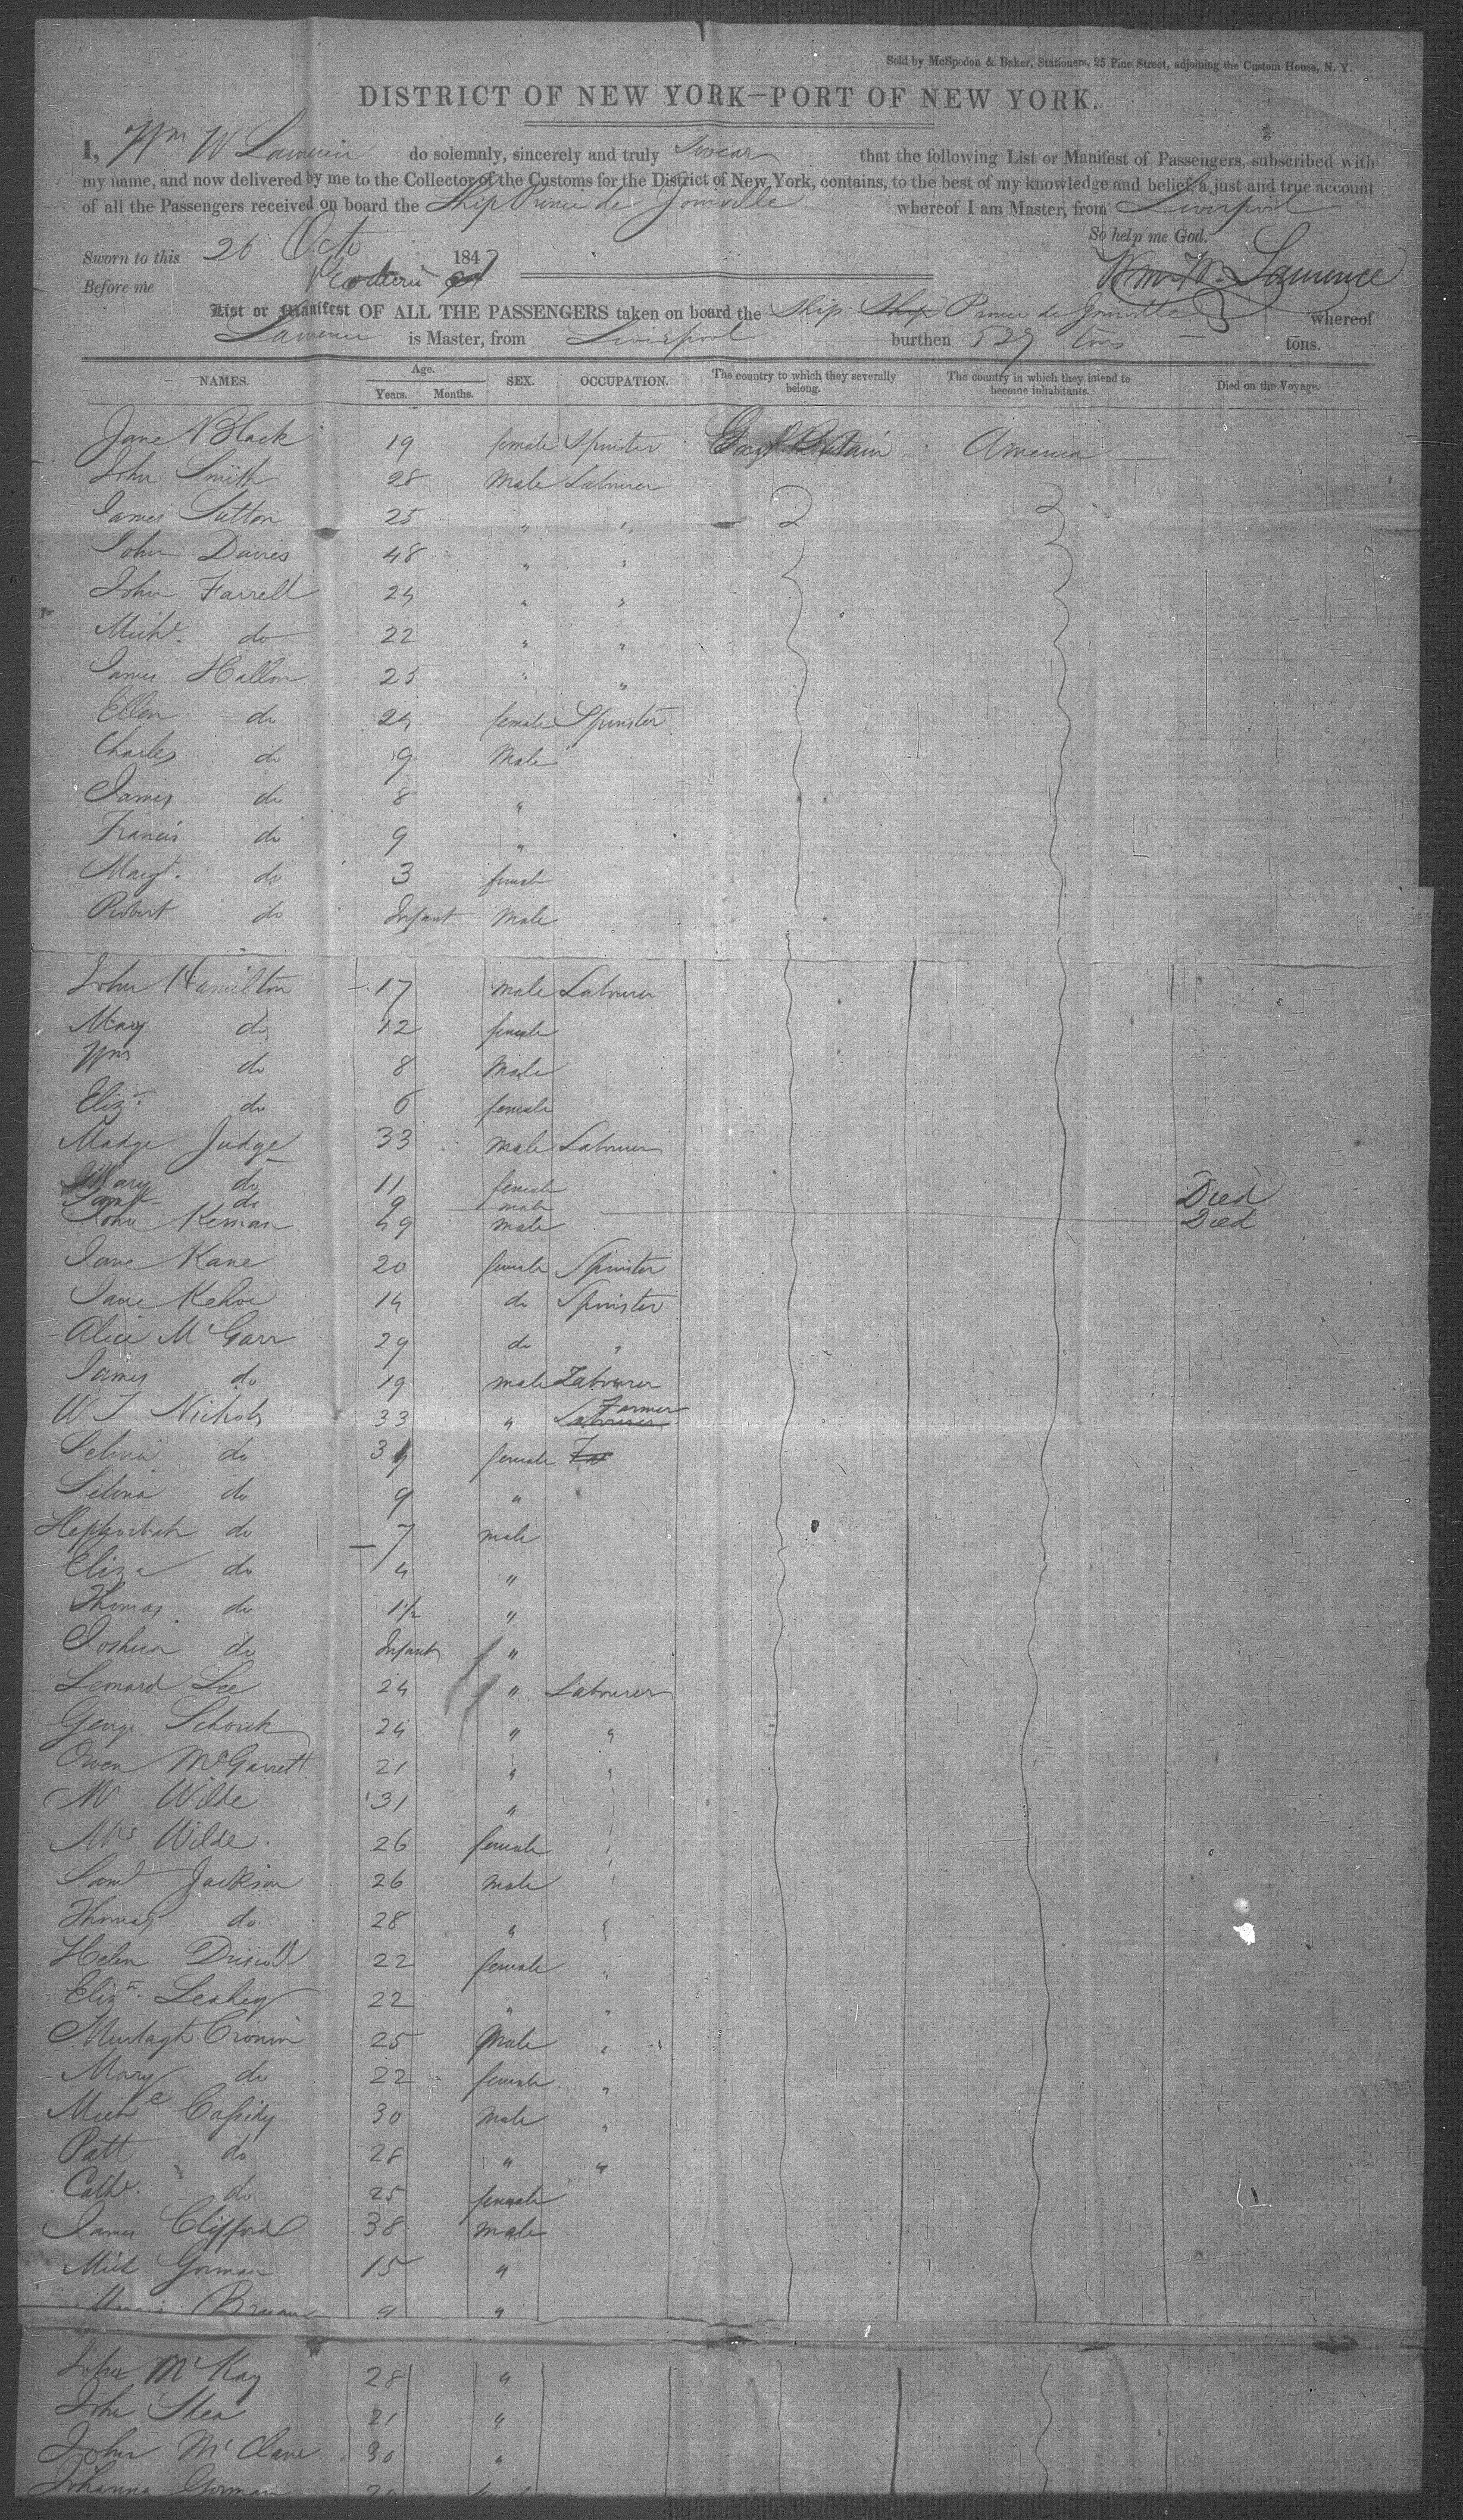 Sold by McSpedon & Baker, Stationers, 25 Pine Street, adjoining the Custom House, N. Y.
DISTRICT OF NEW YORK—PORT OF NEW YORK.
I, Wm W Lawrence do solemnly, sincerely and truly Swear that the following List or Manifest of Passengers, subscribed with
my name, and now delivered by me to the Collector of the Customs for the District of New York, contains, to the best of my knowledge and belief, a just and true account
of all the Passengers received on board the Ship Prince de Joinville whereof I am Master, from Liverpool
So help me God.
Sworn to this 26 Octo 1847
Before me Wm W. Lawrence
List or Manifest OF ALL THE PASSENGERS taken on board the Ship Ship Prince de Joinville whereof
Lawrence is Master, from Liverpool burthen 527 tons tons.
NAMES. Age. Years. Months. SEX. OCCUPATION. The country to which they severally belong. The country in which they intend to become inhabitants. Died on the Voyage.
Jane Black 19 female Spinster Great Britain America
John Smith 28 Male Labourer
James Sutton 25 " "
John Davies 48 " "
John Farrell 24 " "
Michl. do 22 " "
James Hallon 25 " "
Ellen do 24 female Spinster
Charles do 9 Male
James do 8 "
Francis do 9 "
Margt. do 3 female
Robert do Infant Male
John Hamilton 17 male Labourer
Mary do 12 female
Wm do 8 Male
Eliz. do 6 female
Madge Judge 33 male Labourer
Mary do 11 female
do 9 male Died
John Kernan 49 male Died
Jane Kane 20 female Spinster
Jane Kehoe 14 do Spinster
Alice McGarr 29 do "
James do 19 male Labourer
W T Nichols 33 " Labourer Farmer
Selina do 31 female Fa
Selina do 9 "
Hephzibah do 7 male
Eliza do 4 "
Thomas do 1½ "
Joshua do Infant "
Lenard Lee 24 " Labourer
George Schorick 24 " "
Owen McGarrett 21 " "
Mr Wilde 31 "
Mrs Wilde. 26 female
Saml Jackson 26 male
Thomas do 28 "
Helen Driscoll 22 female "
Eliz. Leahey 22 " "
Murtagh Cronin 25 Male "
Mary do 22 female "
Michl Cassidy 30 Male "
Patt do 28 " "
Cathe. do 25 female
James Clifford 38 male
Mick Gorman 15 "
9 "
John McKay 28 "
John Shea 21 "
John McClane 30 "
Johanna Gorman